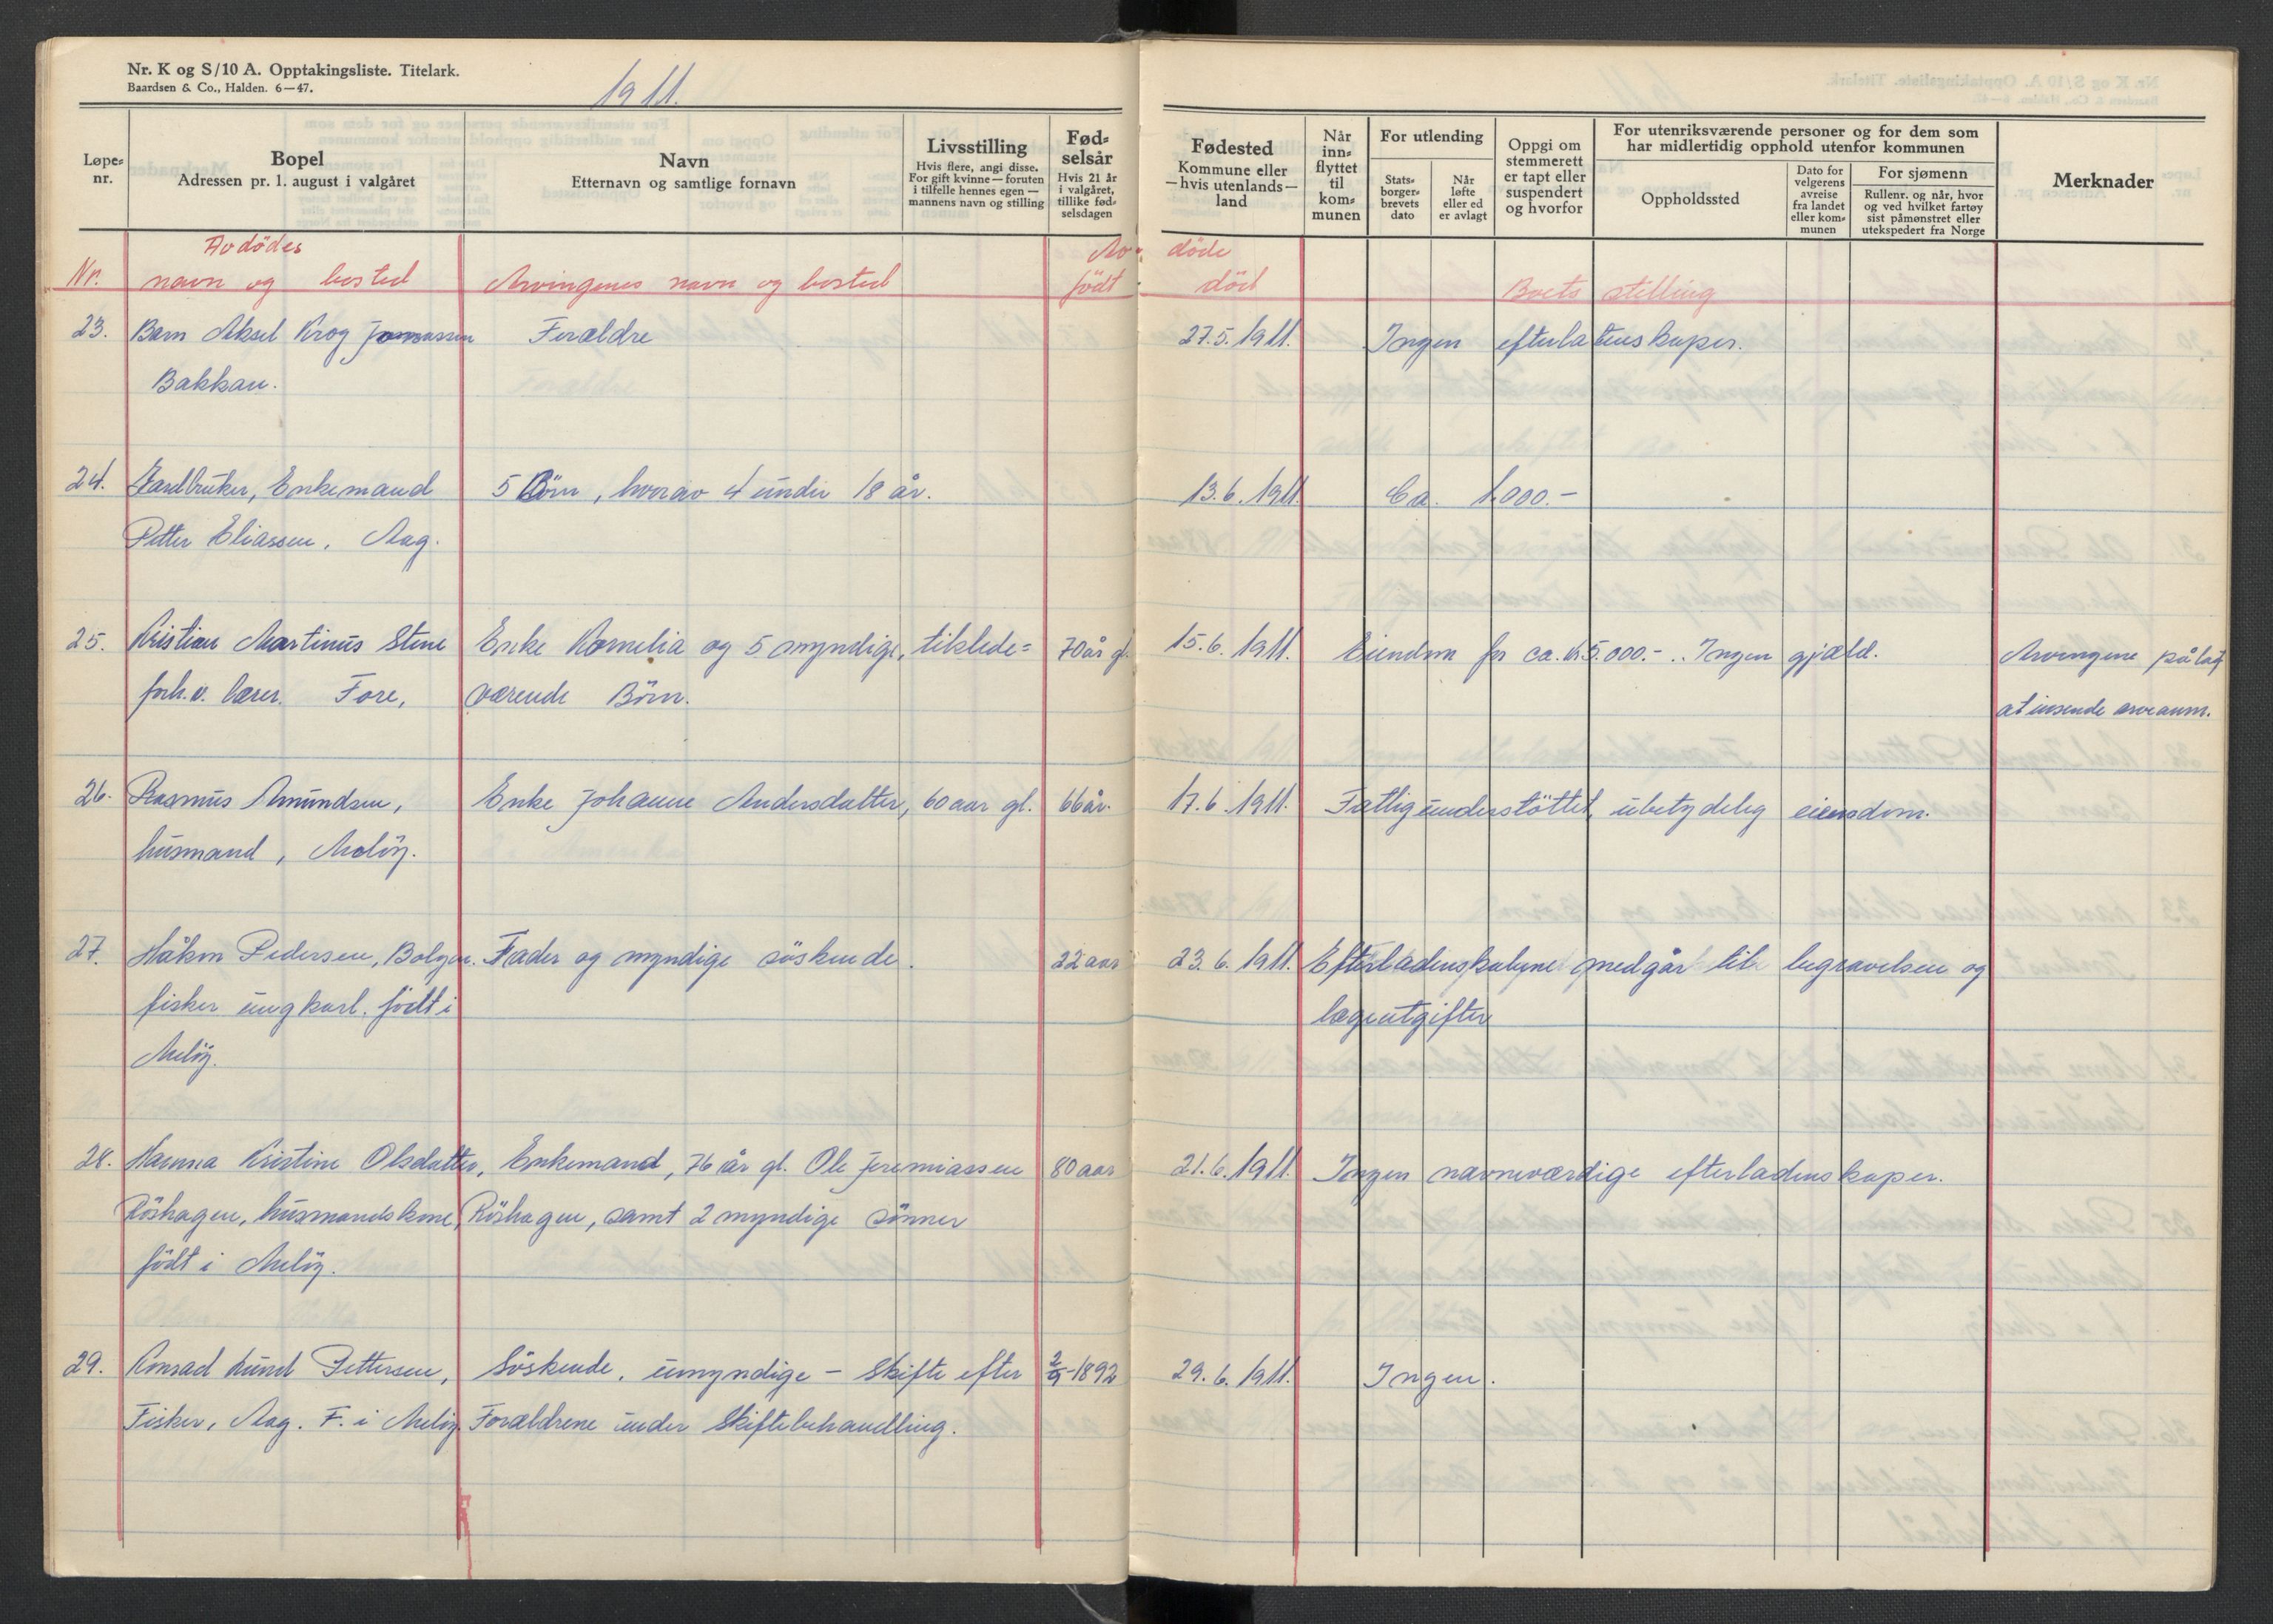 Nr. K og S/10 A. Opptakingsliste. Titelark.
Baardsen & Co., Halden. 6—47.
1911.
Løpe-nr.
Bopel
Adressen pr. 1. august i valgåret
Navn
Etternavn og samtlige fornavn
Livsstilling
Hvis flere, angi disse.
For gift kvinne — foruten
i tilfelle hennes egen —
mannens navn og stilling
Fød-
selsår
Hvis 21 år
i valgåret,
tillike fød-
selsdagen
Fødested
Kommune eller
— hvis utenlands —
land
Når
inn-
flyttet
til
kom-
munen
For utlending
Stats-
borger-
brevets
dato
Når
løfte
eller ed
er avlagt
Oppgi om
stemmerett
er tapt eller
suspendert
og hvorfor
For utenriksværende personer og for dem som
har midlertidig opphold utenfor kommunen
Oppholdssted
Dato for
velgerens
avreise
fra landet
eller kom-
munen
For sjømenn
Rullenr. og når, hvor
og ved hvilket fartøy
sist påmønstret eller
utekspedert fra Norge
Merknader
Avdödes Av- döde
Nr. navn og bosted Arvingenes navn og bosted födt död Boets stilling
23. Barn Aksel Krog Jonassen Foraldre 27.5.1911. Ingen efterlatenskaper.
Bakkan.
24. Gardbruker, Enkemand 5 Börn, hvorav 4 under 18 år. 13.6.1911. Ca. 1.000.-
Petter Eliassen, Aag.
25. Kristian Martinus Stene Enke Kornelia og 5 myndige, tilstede= 70 år gl. 15.6.1911. Eiendom for ca. kr 5.000.-. Ingen gjæld. Arvingene pålagt
forh.v. lærer. Fore, værende Börn. at insende arveanm.
26. Rasmus Amundsen, Enke Johanne Andersdatter, 60 aar gl. 66 år. 17.6.1911. Fattigunderstöttet, ubetydelig eiendom.
husmand, Melöy.
27. Håkon Pedersen, Bolga. Fader og myndige söskende. 22 aar 23.6.1911. Efterladenskapene medgår til begravelsen og
fisker ungkarl. födt i lægeutgifter
Melöy.
28. Hanna Kristine Olsdatter, Enkemand, 76 år gl. Ole Jeremiassen 80 aar 21.6.1911. Ingen navneværdige efterladenskaper.
Röshagen, husmandskone, Röshagen, samt 2 myndige sönner
födt i Melöy.
29. Konrad Lund Pettersen, Söskende, umyndige - Skifte efter 2/9-1892 29.6.1911. Ingen.
Fisker, Aag. F. i Melöy. Forældrene under Skiftebehandling.